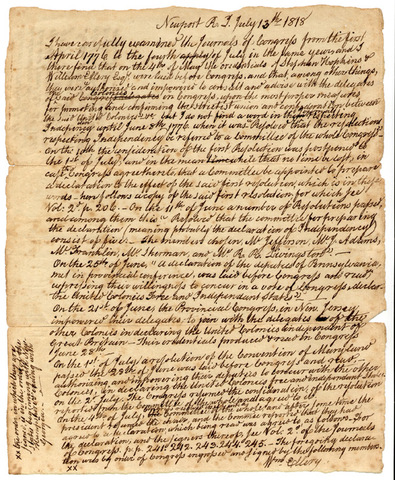 Newport R. I. July 13th 1818
I have carefully examined the Journals of Congress from the first
April 1776 to the fourth of July in the same year, and I
there find that on the 4th of the credentials of Stephen Hopkins &
William Ellery Esqrs were laid before Congress, and that, among other things,
they were authorised and empowered to consult and advise with the delegates
of said on Congress, upon the most proper measures
for promoting and confirming the strictest union and confederacy between
the said United Colonies &c but I do not find a word in them respecting
Independency until June 8th 1776 when it was Resolved that the resolutions
respecting Independency be referred to a Committee of the whole Congress.
On the 10th the consideration of the first Resolution was postponed to
the 1st of July, and in the mean while that no time be lost, in
case Congress agree thereto that a Committee be appointed to prepare
a declaration to the effect of the said first resolution, which is in these
words — here follows a copy of the said first resolution for which see
Vol: 2d p. 205 — On the 11th of June a number of Resolutions passed,
and among them this Resolved that the committee for preparing
the declaration (meaning probably the declaration of Independency)
consist of five — The members chosen Mr. Jefferson, Mr. J. Adams,
Mr. Franklin, Mr. Sherman, and Mr. R. R. Livingston
On the 25th of June, "a declaration of the deputies of Pennsylvania
met in provincial conference, was laid before Congress and read
expressing their willingness to concur in a vote of Congress declar-
the United Colonies Free and Independent States"
On the 21st of June the Provincial Congress, in New Jersey
impowered their delegates to join with the delegates of the
other Colonies in declaring the United Colonies independent of
Great Britain — Their credentials produced & read in Congress
June 28th
On the 1st of July a resolution of the Convention of Maryland
passed the 28th of June was laid before Congress and read,
authorizing and impowering their deputies to concur with the other
Colonies, in declaring the United Colonies free and independent States
On the 2d July the Congress resumed the consideration of the resolution
reported from the Committee of the whole, and agreed to it
On the 4th of July the Committee of the whole, and after some time the
president resumed the chair, and the Committee reported that they had
agreed to a declaration which being read was agreed to as follows. For
declaration, and the signers thereof see Vol: 2d of the Journals
of Congress p.p. 241. 242. 243. 244. 245. — The foregoing declara-
tion was by order of Congress engrossed and signed by the following members
xx Wm Ellery
xx